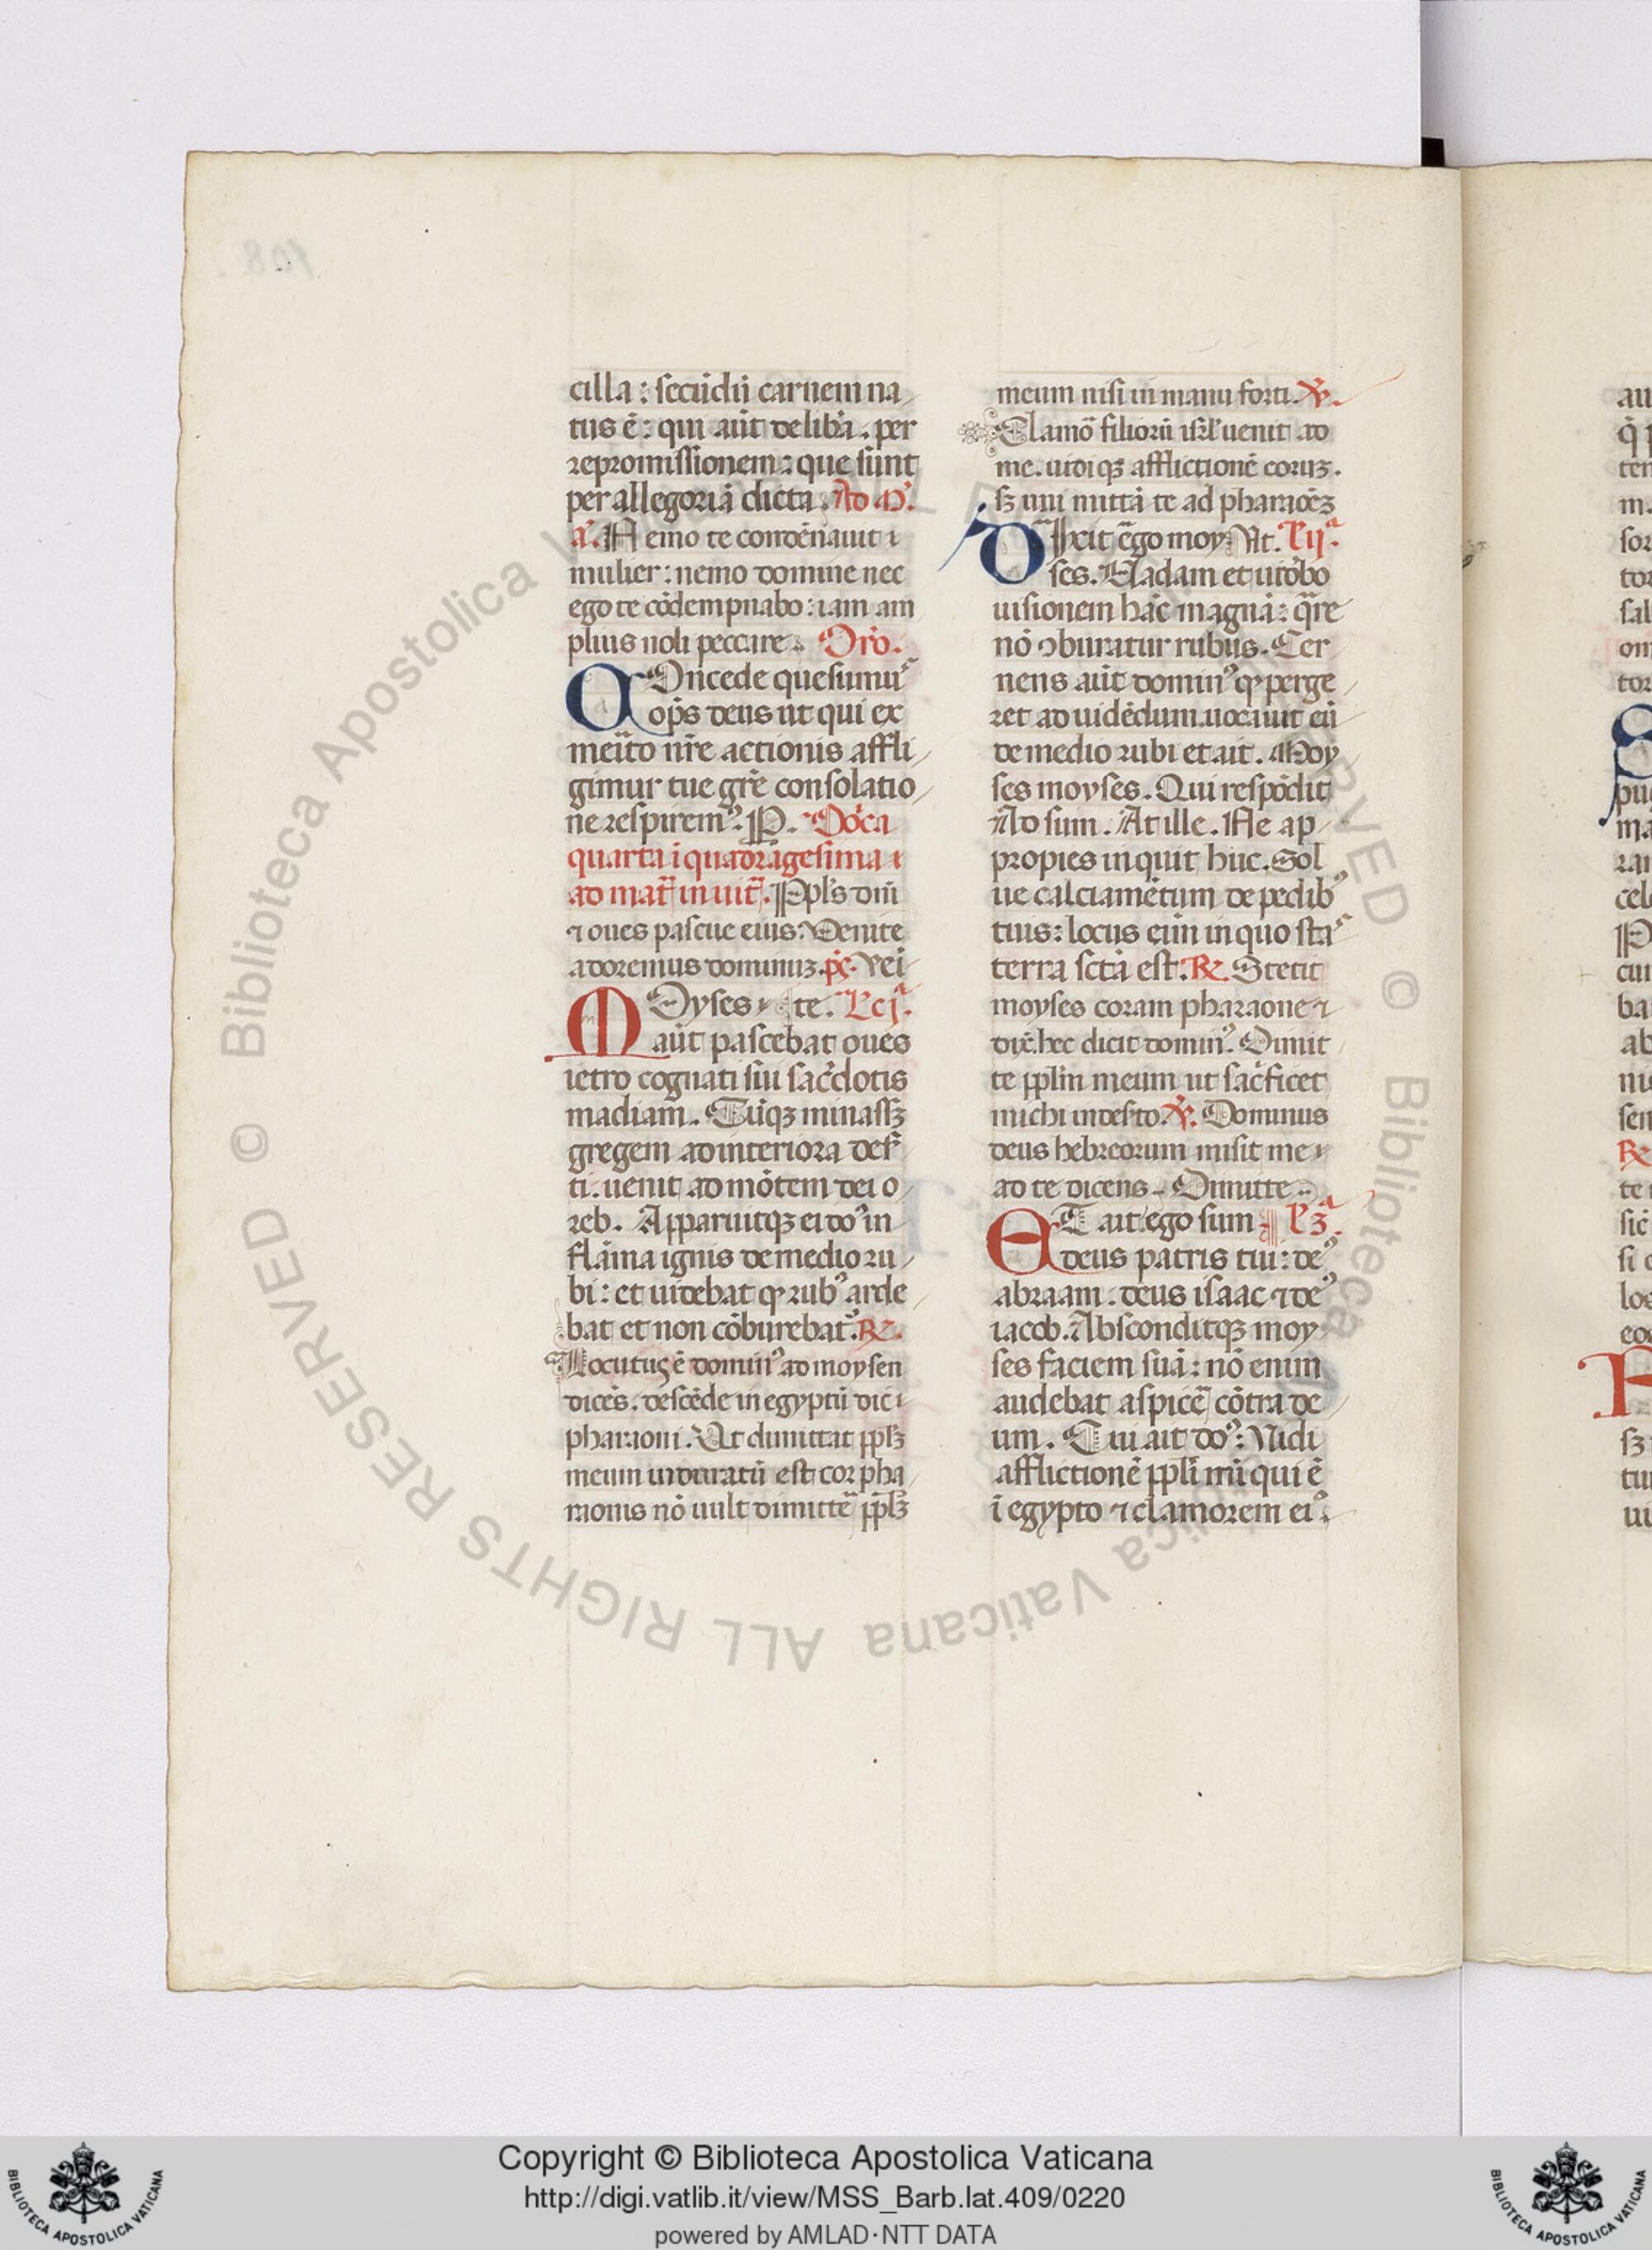 cilla : secūdū carnem na
tus ē : qui aūt de libā . per
repromissionem : que sunt
per allegoriā dicta . Ad M̄.
a͞. Nemo te condēnauit
mulier : nemo domine nec
ego te cōdempnabo : iam am
plius noli peccare . Orō.
COncede quesumus
op̄s deus ut qui ex
merito nr̄e actionis affli
gimur tue gr̄e consolatio
ne respiremꝰ . P. Dōca
quarta ī quadragesima
ad mat̄ inuit̄ . Ppl̄s dn̄i
⁊ oues pascue eius : Venite
adoremus dominuꝫ . ps̄. Vēi
MOyses te . Lc̄ jᵃ.
aūt pascebat oues
ietro cognati sui sac̄dotis
madiam . Cūqꝫ minassꝫ
gregem ad interiora des̄
ti . uenit ad mōtem dei o
reb . Apparuitqꝫ ei doꝰ in
flāma ignis de medio ru
bi : et uidebat ꝙ rubꝰ arde
bat et non cōburebatꝰ . ℟.
Locutus ē dominꝰ ad moysen
dicēs . descēde in egyptū dic
pharaoni . Vt dimittat pplꝫ
meum induratū est cor pha
raonis nō uult dimittē pplꝫ
meum nisi in manu forti . ℣.
Clamō filiorū isrl̄ uenit ad
me . uidi qꝫ afflictionē eoruꝫ .
sꝫ uni mittā te ad pharaōeꝫ
DIxit ēgo moy At . L ijᵃ.
ses . Uadam et uidōbo
uisionem hāc magnā : q̄re
nō ꝯburatur rubus . Cer
nens aūt dominꝰ ꝙ perge
ret ad uidēdum . uocauit eū
de medio rubi et ait . Moy
ses moyses . Qui respōdit
Ad sum . At ille . Ne ap
propies inquit huc . Sol
ue calciamētum de pedibꝰ
tuis : locus eīm in quo stas
terra sctā est . ℟. Stetit
moyses coram pharaone ⁊
dix̄ . hec dicit dominꝰ . Dimit
te pplm̄ meum ut sac̄ficet
michi in des̄to . ℣. Dominus
deus hebreorum misit me
ad te dicens . Dimitte .
ET ait ego sum L 3ᵃ.
deus patris tui : deꝰ
abraam . deus isaac ⁊ deꝰ
iacob . Abscondit qꝫ moy
ses faciem suā : nō enim
audebat aspicē cōtra de
um . Cui ait doꝰ : Vidi
afflictionē ppli m̄i qui ē
ī egypto ⁊ clamorem eiꝰ .
Copyright © Biblioteca Apostolica Vaticana
http://digi.vatlib.it/view/MSS_Barb.lat.409/0220
powered by AMLAD·NTT DATA